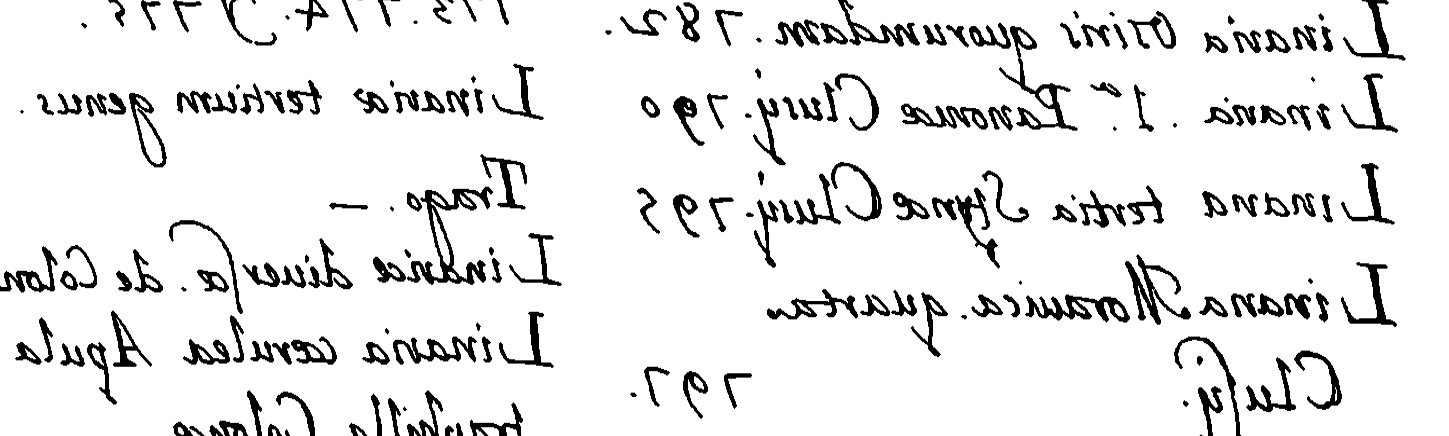 Linaria Osiris quorumdam. 782.
Linaria. 1.ª Panoniæ Clusij. 790
Linaria tertia Styriæ Clusij. 795
Linaria Morauica. quarta
Cluſij. 797.
774. y 775.
Linariæ tertium genus.
Trago. —
Linariæ diuerſæ. de Colon
Linaria cærulea Apula